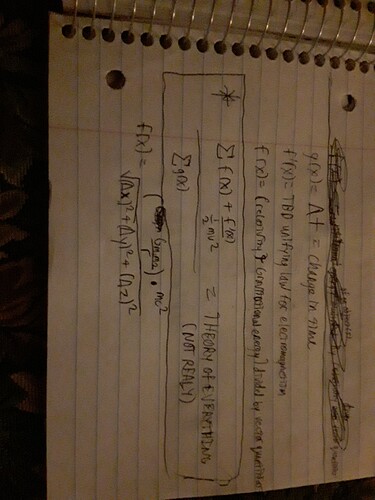 g(x) = Δt = change in time
f'(x) = TBD unifying law for electromagnetism
f(x) = (relativity & Gravitational energy) divided by vector quantities
* Σ f(x) + f'(x) / ½mv² = THEORY OF EVERYTHING
Σ g(x) (NOT REALLY)
f(x) = (Gm₁m₂ / r) • mc²
√(Δx)² + (Δy)² + (Δz)²